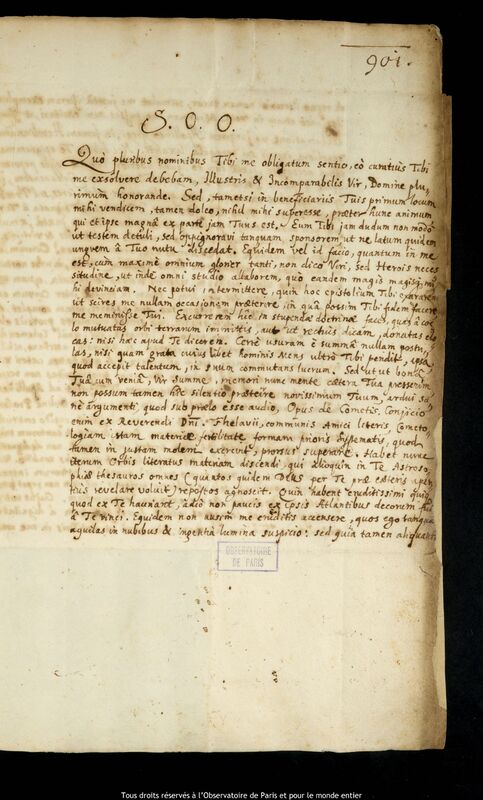 901.
S. O. O.
Quò pluribus nominibus Tibi me obligatum sentio, eò curatiùs Tibi
me exsolvere debebam, Illustris & Incomparabilis Vir, Domine plu,
rimùm honorande. Sed, tametsi in beneficiariis Tuis primum locum
mihi vendicem, tamen doleo, nihil mihi superesse, præter hunc animum
qui et ipse magnâ ex parte jam Tuus est. Eum Tibi jam dudum non modò
ut testem detuli, sed oppigneravi tanquam sponsorem ut ne latum quidem
unguem à Tuo nutu discedat. Equidem vel id facio, quantum in me
est, cum maximè omnium glorier tanti, non dico Viri, sed Herois neces
situdine, ut inde omni studio allaborem, quò eandem magis magisq; mi
hi devinciam. Nec potui intermittere, quin hoc epistolium Tibi exararem
ut scires me nullam occasionem præterire, in quâ possim Tibi fidem facere
me meminisse Tui. hîc in stupendæ doctrinæ faces, quas à coe,
lo mutuatas orbi terrarum immittis, aut ut rectiùs dicam, donatas
cas: nisi hæc apud Te dicerem. Certè usuram è summâ nullam postu,
las, nisi quam grata cuius libet hominis Mens ultrò Tibi pendit, ipsa
quod accepit talentum, in suum commutans lucrum. Sed ut ut bonâ
Tuâ cum veniâ, Vir summe, memori nunc mente cætera Tua presserim
non possum tamen hîc silentio præterire novissimum Tuum, ardui sa,
nè argumenti quod sub prælo esse audio, Opus de Cometis. Conjicio
enim ex Reverendi Dni. Thelavii, communis Amici literis, Cometo,
logiam istam materiæ fertilitate formam prioris quod
tamen in justam molem exerevit, prorsus superare. Habet nunc
iterum Orbis literatus materiam discendi, qui alioquin in Te Astroso,
phiæ thesauros omnes (quantos quidem DEUS per Te præ cæteris aper,
tiùs revelare voluit) repostos agnoscit. Quin habent eruditissimi quiq;
quod ex Te hauriant, adeò non paucis ex ipsis Atlantibus decorum
à Te vinci. Equidem non ausim me eruditis accensere, quos ego tanquam
aquilas in nubibus & ingentia lumina suspicio: sed quia tamen aliquanti
OBSERVATOIRE
DE PARIS
Tous droits réservés à l'Observatoire de Paris et pour le monde entier